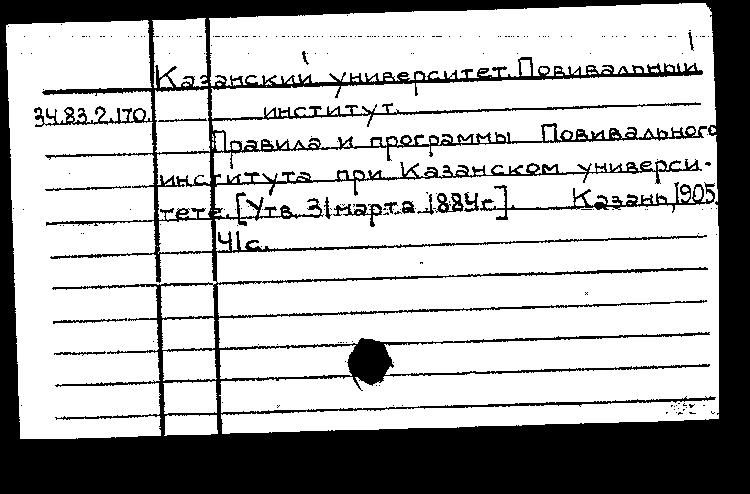 Казанский университет. Повивальный
34.83.2.170. институт.
Правила и программы Повивального
института при Казанском универси-
тете. [Утв. 31 марта 1884 г.]. Казань, 1905.
41 с.